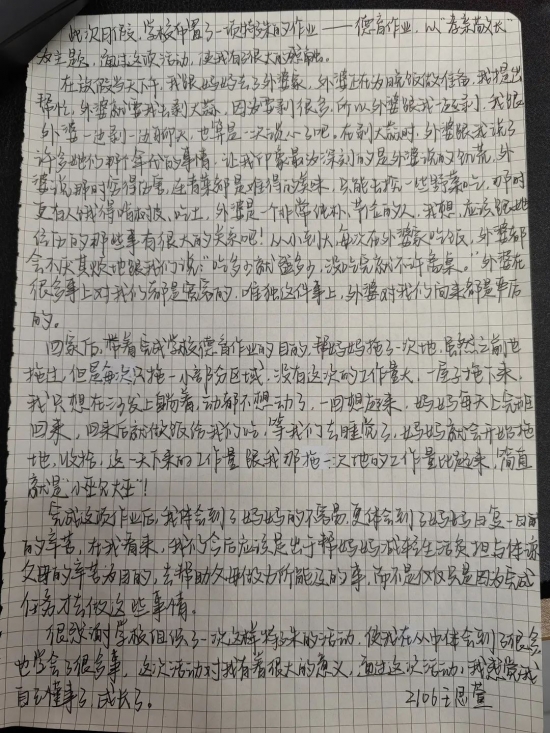 此次月假,学校布置了一项特殊的作业——德育作业,以"孝亲敬长"
为主题,通过这项活动,使我有了很大的感触。
在放假当天下午,我跟妈妈去了外婆家,外婆正在为晚饭做准备,我提出
帮忙,外婆就要我去剥大蒜,因为要剥很多,所以外婆跟我一起剥,我跟
外婆一边剥一边聊天,也算是一次谈心了吧,在剥大蒜时,外婆跟我说了
许多她们那个年代的事情,让我印象最为深刻的是外婆说的饥荒,外
婆说那时穷得厉害,连青菜都是难得的美味,只能去挖一些野菜吃,那时
更有人饿得啃树皮、吃土,外婆是一个非常纯朴、节俭的人,我想,应该跟她
经历的那些事有很大的关系吧!从小到大,每次在外婆家吃饭,外婆都
会不厌其烦地跟我们说:"吃多少就盛多少,没吃完就不许离桌。"外婆在
很多事上对我们都是宽容的,唯独这件事上,外婆对我们向来都是严厉
的。
回家后,带着完成学校德育作业的目的,帮妈妈拖了一次地,虽然之前也
拖过,但是每次只拖一小部分区域,没有这次的工作量大,一屋子拖下来,
我只想在沙发上躺着,动都不想动了,一回想起来,妈妈每天上完班
回来,回来后就做饭给我们吃,等我们去睡觉了,妈妈就会开始拖
地,收拾,这一天下来的工作量跟我那拖一次地的工作量比起来,简直
就是"小巫见大巫"!
完成这项作业后,我体会到了妈妈的不容易,更体会到了妈妈日复一日的
的辛苦,在我看来,我们今后应该是出于帮妈妈减轻生活负担与体谅
父母的辛苦为目的,去帮助父母做力所能及的事,而不是仅仅只是因为完成
任务才去做这些事情。
很感谢学校组织了一次这样特殊的活动,使我在从中体会到了很多,
也学会了很多事,这次活动对我有着很大的意义,通过这次活动,我感觉我
自己懂事了,成长了。
2106王思萱